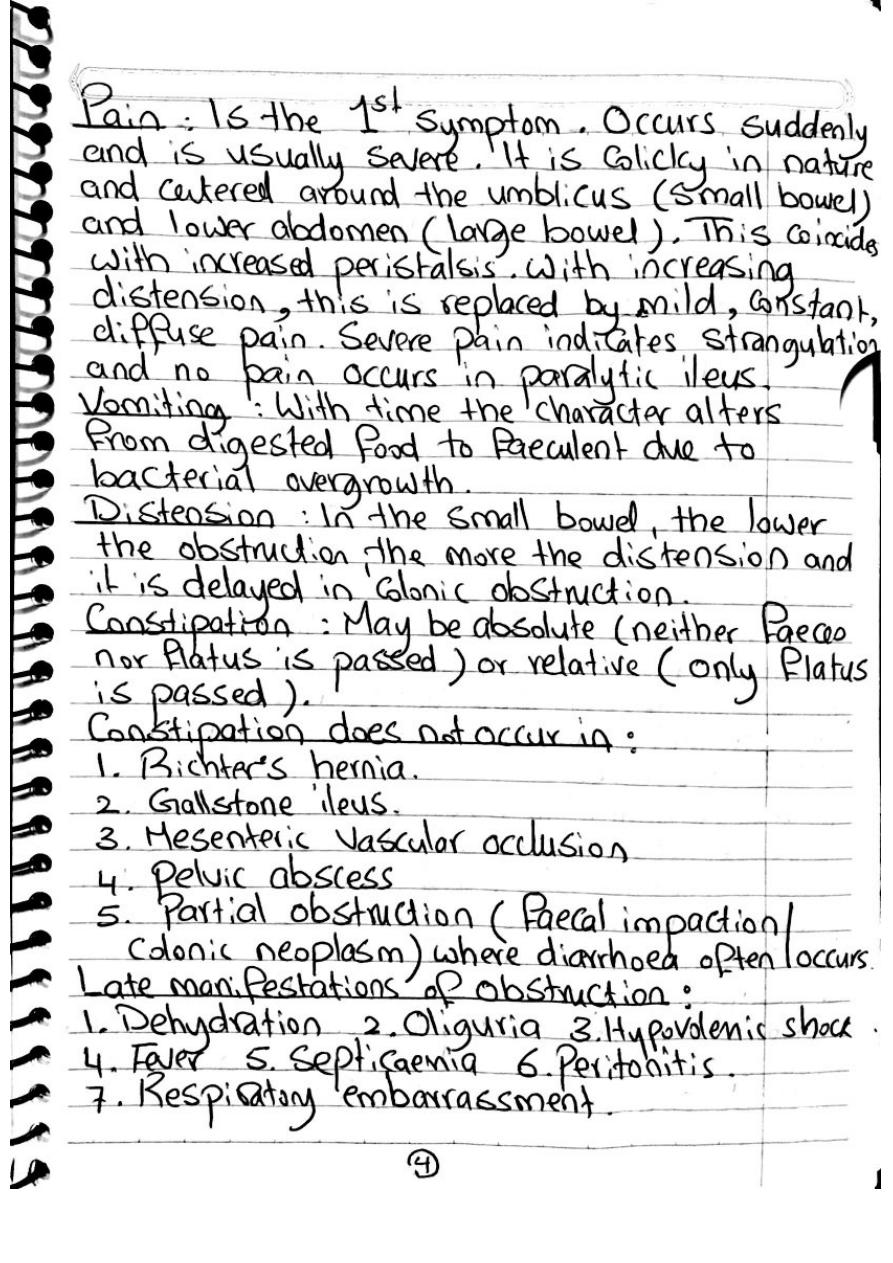 Pain : Is the 1st symptom. Occurs suddenly
and is usually severe. It is Colicky in nature
and centered around the umblicus (small bowel)
and lower abdomen (large bowel). This coincides
with increased peristalsis. With increasing
distension, this is replaced by mild, constant,
diffuse pain. Severe pain indicates strangulation
and no pain occurs in paralytic ileus.
Vomiting : With time the character alters
from digested food to faeculent due to
bacterial overgrowth.
Distension : In the small bowel, the lower
the obstruction, the more the distension and
it is delayed in colonic obstruction.
Constipation : May be absolute (neither faeces
nor flatus is passed) or relative (only flatus
is passed).
Constipation does not occur in :
1. Richter's hernia.
2. Gallstone ileus.
3. Mesenteric Vascular occlusion
4. Pelvic abscess
5. Partial obstruction (faecal impaction/
Colonic neoplasm) where diarrhoea often occurs.
Late manifestations of obstruction :
1. Dehydration 2. Oliguria 3. Hypovolemic shock.
4. Fever 5. Septicaemia 6. Peritonitis.
7. Respiratory embarrassment.
4